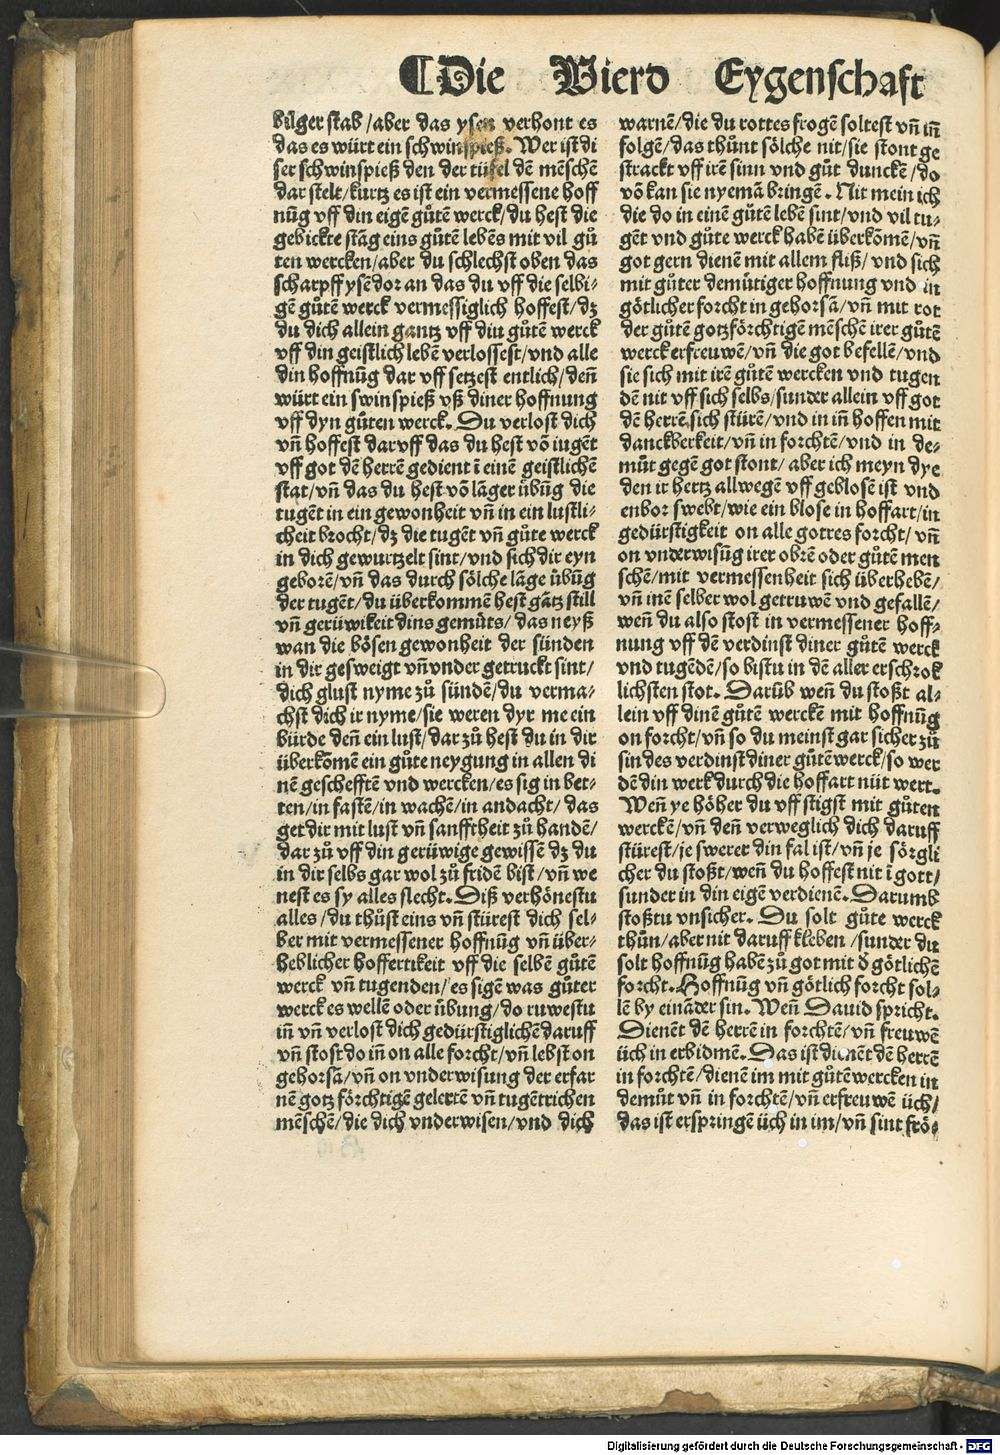 ¶Die Vierd Eygenschaft
bilger stab/aber das ysen verhont es
das es würt ein schwinspieß. Wer ist di
ser schwinspieß den der tüfel dē mēschē
dar stelt/kurtz es ist ein vermessene hoff
nūg vff din eigē gůtē werck/du hest die
gebickte stāg eins gůtē lebēs mit vil gů
ten wercken/aber du schlechst oben das
scharpff ysē dor an das du vff die selbi-
gē gůtē werck vermessiglich hoffest/dz
du dich allein gantz vff din gůtē werck
vff din geistlich lebē verlossest/vnd alle
din hoffnūg dar vff setzest entlich/deñ
würt ein swinspieß vß diner hoffnung
vff dyn gůten werck. Du verlost dich
vñ hoffest dar vff das du hest vō iugēt
vff got dē herrē gedient ī einē geistlichē
stat/vñ das du hest vō lāger übūg die
tugēt in ein gewonheit vñ in ein lustli-
cheit brocht/dz die tugēt vñ gůte werck
in dich gewurtzelt sint/vnd sich dir eyn
geborē/vñ das durch sölche lāge übūg
der tugēt/du überkommē hest gātz still
vñ gerüwikeit dins gemüts/das neyß
wan die bösen gewonheit der sünden
in dir gesweigt vñ vnder getruckt sint/
dich glust nyme zů sündē/du verma-
chst dich ir nyme/sie weren dyr me ein
bürde deñ ein lust/dar zů hest du in dir
überkōmē ein gůte neygung in allen di
nē geschefftē vnd wercken/es sig in bet-
ten/in fastē/in wachē/in andacht/das
get dir mit lust vñ sanfftheit zů handē/
dar zů vff din gerüwige gewissē dz du
in dir selbs gar wol zů fridē bist/vñ we
nest es sy alles slecht. Diß verhönestu
alles/du thůst eins vñ stürest dich sel-
ber mit vermessener hoffnūg vñ über-
heblicher hoffertikeit vff die selbē gůtē
werck vñ tugenden/es sigē was gůter
werck es wellē oder übung/do ruwestu
iñ vñ verlost dich gedürstiglichē daruff
vñ stost do iñ on alle forcht/vñ lebst on
gehorsā/vñ on vnderwisung der erfar
nē gotz förchtigē gelertē vñ tugētrichen
mēschē/die dich vnderwisen/vnd dich
warnē/die du rottes frogē soltest vñ iñ
folgē/das thůnt sölche nit/sie stont ge
strackt vff irē sinn vnd gůt dunckē/do
vō kan sie nyemā bringē. Nit mein ich
die do in einē gůtē lebē sint/vnd vil tu-
gēt vnd gůte werck habē überkōmē/vñ
got gern dienē mit allem fliß/vnd sich
mit gůter demütiger hoffnung vnd in
götlicher forcht in gehorsā/vñ mit rot
der gůtē gotzförchtigē mēschē irer gůtē
werck erfreuwē/vñ die got befellē/vnd
sie sich mit irē gůtē wercken vnd tugen
dē nit vff sich selbs/sunder allein vff got
dē herrē sich stürē/vnd in iñ hoffen mit
danckberkeit/vñ in forchtē/vnd in de-
můt gegē got stont/aber ich meyn dye
den ir hertz allwegē vff geblosē ist vnd
enbor swebt/wie ein blose in hoffart/in
gedürstigkeit on alle gottes forcht/vñ
on vnderwisūg irer obrē oder gůtē men
schē/mit vermessenheit sich überhebē/
vñ inē selber wol getruwē vnd gefallē/
weñ du also stost in vermessener hoff-
nung vff dē verdinst diner gůtē werck
vnd tugēdē/so bistu in dē aller erschrok
lichsten stot. Darūb weñ du stoßt al-
lein vff dinē gůtē werckē mit hoffnūg
on forcht/vñ so du meinst gar sicher zů
sin des verdinst diner gůtē werck/so wer
dē din werk durch die hoffart nüt wert.
Weñ ye höher du vff stigst mit gůten
werckē/vñ deñ verweglich dich daruff
stürest/je swerer din fal ist/vñ je sörgli
cher du stoßt/weñ du hoffest nit ī gott/
sunder in din eigē verdienē. Darumb
stoßtu vnsicher. Du solt gůte werck
thůn/aber nit daruff kleben/sunder du
solt hoffnūg habē zů got mit d̄ götlichē
forcht. Hoffnūg vñ götlich forcht sol-
lē by eināder sin. Weñ Dauid spricht.
Dienēt dē herrē in forchtē/vñ freuwē
üch in erbidmē. Das ist dienēt dē herrē
in forchtē/dienē im mit gůtē wercken in
demůt vñ in forchtē/vñ erfreuwē üch/
das ist erspringē üch in im/vñ sint frö-
Digitalisierung gefördert durch die Deutsche Forschungsgemeinschaft - DFG